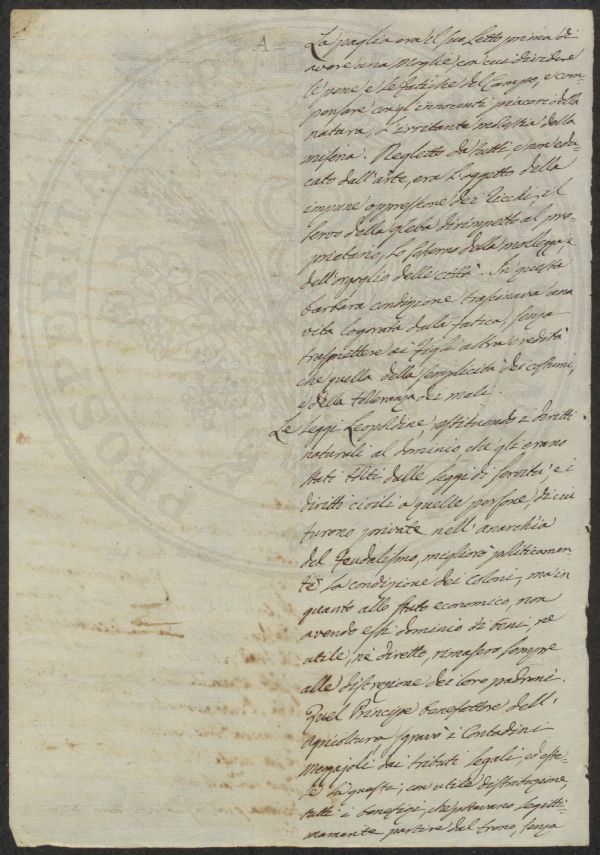 A
La paglia era il suo Letto prima di
avere una Moglie, con cui dividere
le pene, e le fatiche del Campo, e com-
pensare con gl'innocenti piaceri della
natura, l'irritante molestia della
miseria. Negletto da tutti, e non edu-
cato dall'arte, era l'oggetto della
impune oppressione dei Ricchi, il
servo della gleba dirimpetto al pro-
prietario, lo scherno della mollezza, e
dell'orgoglio delle città. In questa
barbara condizione trascinava una
vita logorata dalla fatica, senza
trasmettere ai Figli altra eredità
che quella della semplicità dei costumi,
e della tolleranza dei mali.
Le Leggi Leopoldine, restituendo i diritti
naturali al dominio, che gli erano
stati tolti dalle leggi di servitù, e i
diritti civili a quelle persone, di cui
furono private nell'anarchia
del Feudalismo, migliorò politicamen-
te la condizione dei Coloni; ma in
quanto allo stato economico, non
avendo essi dominio di beni, nè
utile, nè diretto, rimasero sempre
alle discrezione dei loro padroni.
Quel Principe benefattore dell'
Agricoltura sgravò i Contadini
Mezzajoli dai tributi legali, ed este-
se su questi, con utile distribuzione,
tutti i benefizi, che potevano legitti-
mamente partire dal trono, senza